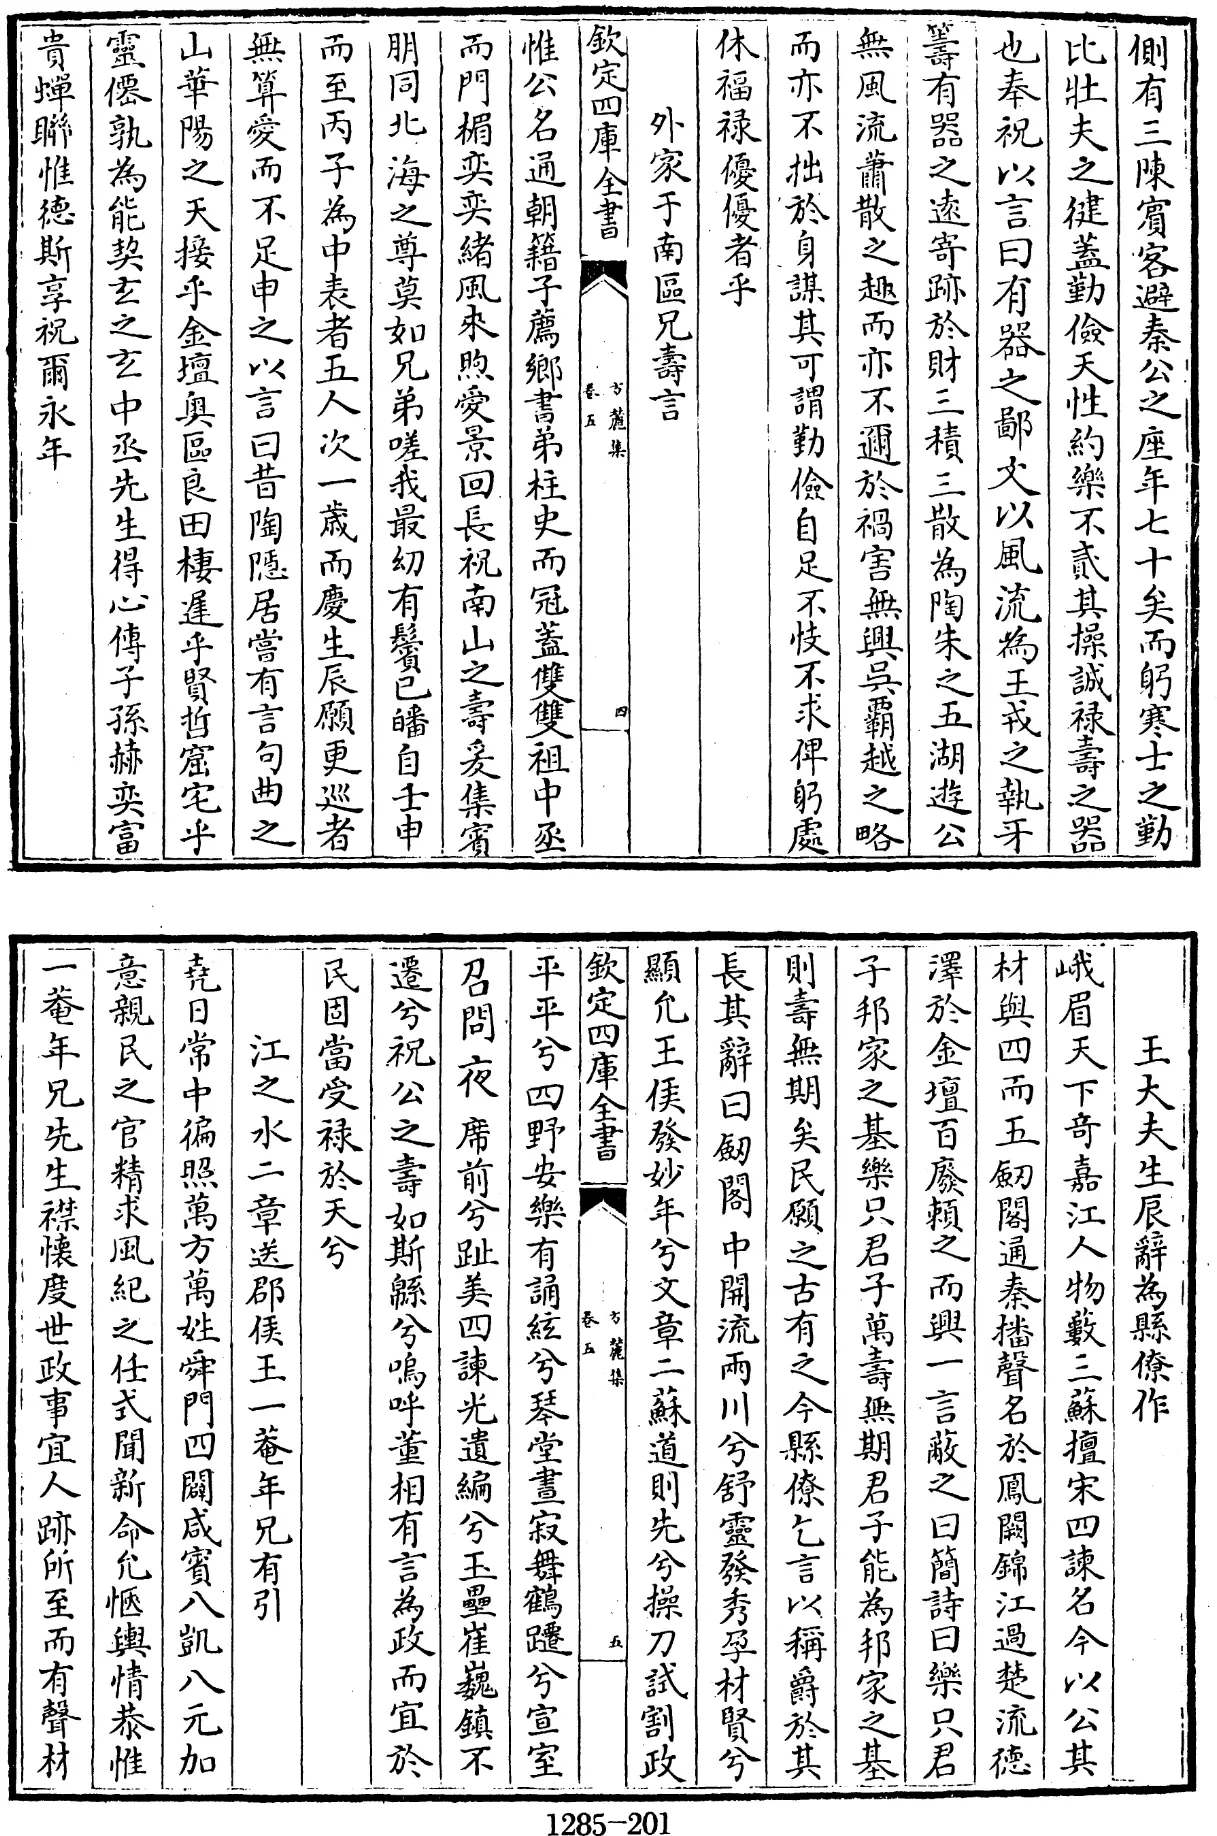 側有三陳賓客避秦公之座年七十矣而躬寒士之勤
比壯夫之健蓋勤儉天性約樂不貳其操誠祿壽之器
也奉祝以言曰有器之鄙文以風流為王戎之執牙
籌有器之遠寄跡於財三積三散為陶朱之五湖遊公
無風流蕭散之趣而亦不邇於禍害無興吳霸越之略
而亦不拙於身謀其可謂勤儉自足不忮不求俾躬處
休福祿優優者乎
外家于南區兄壽言
欽定四庫全書
方麓集
卷五
四
惟公名通朝籍子薦鄉書弟柱史而冠蓋雙雙祖中丞
而門楣奕奕緒風來煦愛景回長祝南山之壽爰集賓
朋同北海之尊莫如兄弟嗟我最幼有鬢已皤自壬申
而至丙子為中表者五人次一歲而慶生辰願更巡者
無算愛而不足申之以言曰昔陶隱居嘗有言句曲之
山華陽之天接乎金壇奥區良田棲遲乎賢哲窟宅乎
靈僊孰為能契玄之玄中丞先生得心傳子孫赫奕富
貴蟬聯惟德斯享祝爾永年
王大夫生辰辭為縣僚作
峨眉天下奇嘉江人物藪三蘇擅宋四諫名今以公其
材與四而五劒閣通秦播聲名於鳳闕錦江過楚流德
澤於金壇百廢頼之而興一言蔽之曰簡詩曰樂只君
子邦家之基樂只君子萬壽無期君子能為邦家之基
則壽無期矣民願之古有之今縣僚乞言以稱爵於其
長其辭曰劒閣中開流兩川兮舒靈發秀孕材賢兮
顯允王侯發妙年兮文章二蘇道則先兮操刀試割政
欽定四庫全書
方麓集
卷五
五
平平兮四野安樂有誦絃兮琴堂晝寂舞鶴躚兮宣室
召問夜席前兮趾美四諫光遺編兮玉壘崔巍鎮不
遷兮祝公之壽如斯緜兮嗚呼董相有言為政而宜於
民固當受祿於天兮
江之水二章送郡侯王一菴年兄有引
堯日常中徧照萬方萬姓舜門四闢咸賓八凱八元加
意親民之官精求風紀之任式聞新命允愜輿情恭惟
一菴年兄先生襟懷度世政事宜人跡所至而有聲材
1285-201